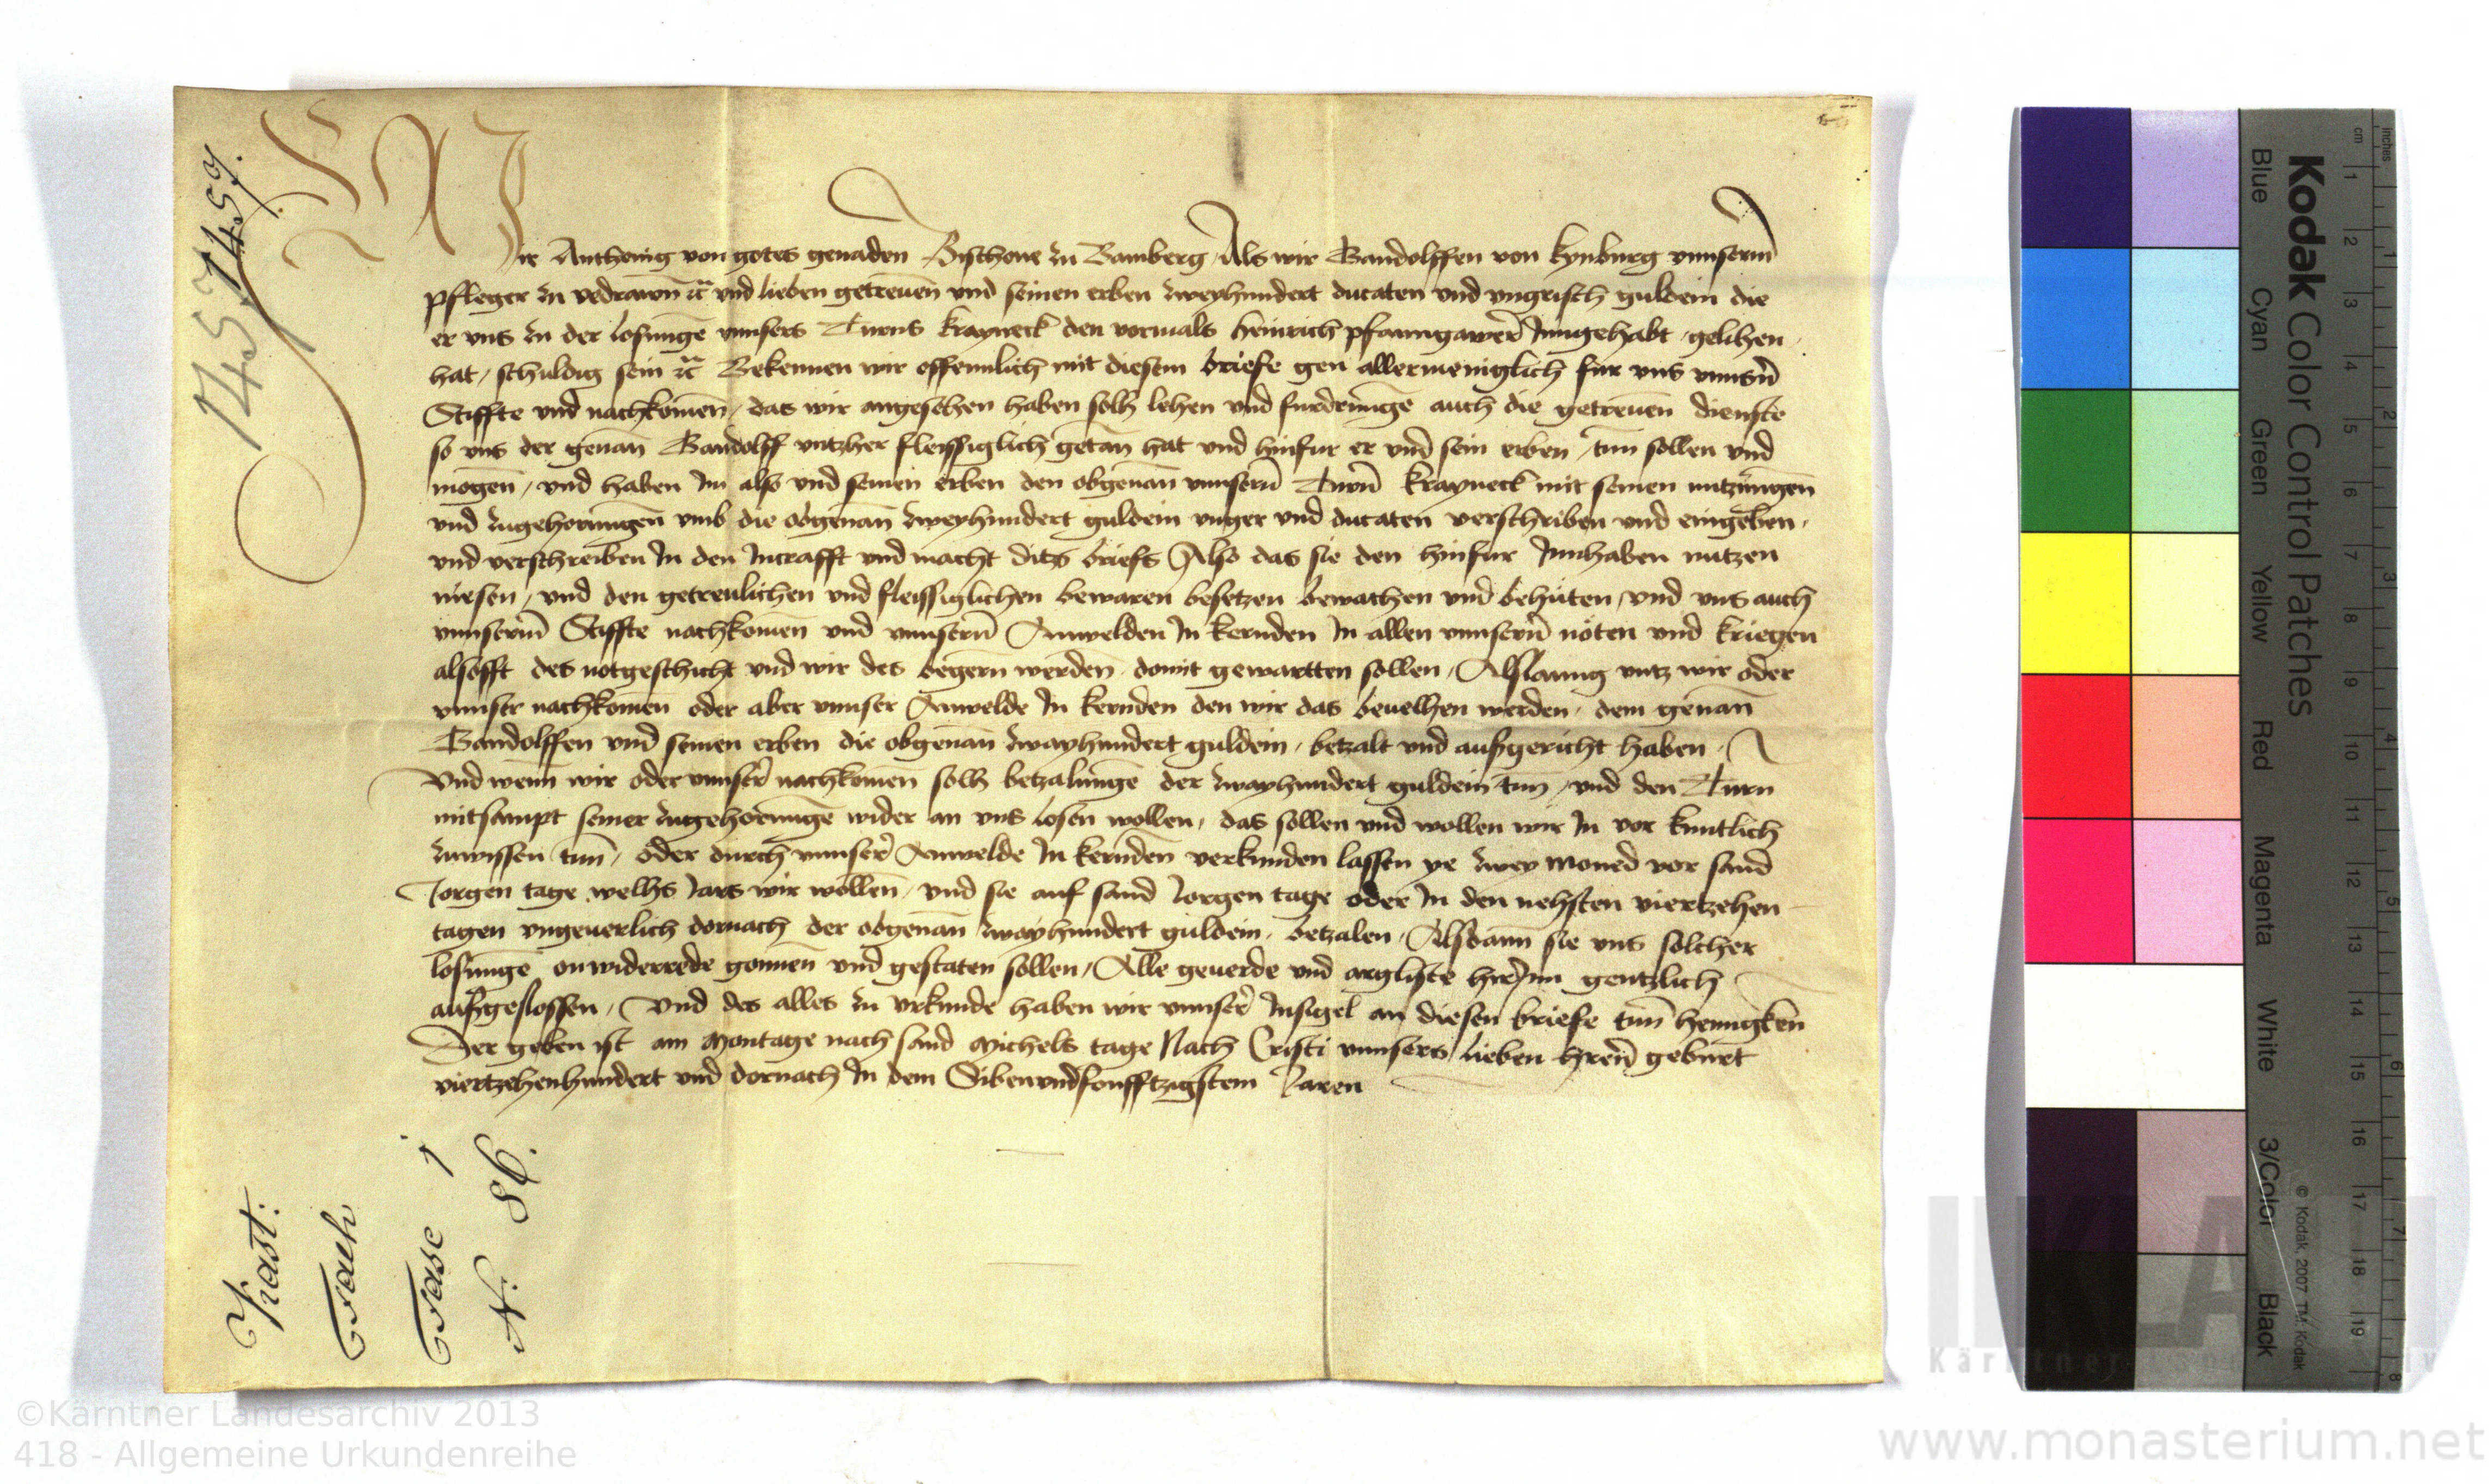 Wir Anthonig von gotes genaden Bischoue zu Bamberg Als wir Gandolffen von kynburg vnnserm̄
pfleger zu vedrawn ꝛc̄ vnd lieben getrewen vnd seinen erben zweyhundert ducaten vnd vngrisch guldein die
er vns zu der losunge vnnsers Turns krayneck den vormals heinrich pfanngawer Inngehabt gelihen
hat / schuldig sein ꝛc̄ Bekennen wir offennlich mit diesem briefe gen allermeniglich fur vns vnnsn̄
Stiffte vnd nachkomen̄ / das wir angesehen haben solh lehen vnd furdrunge auch die getrewen dienste
so vns der genan̄ Gandolff vntzher fleissiglich getan hat vnd hinfur er vnd sein erben tun sollen vnd
mogen / vnd haben Im also vnd seinen erben den obgenan̄ vnnsern̄ Turn̄ krayneck mit seinen nutzungen
vnd zugehorungen vmb die obgenan̄ zweyhundert guldein vnger vnd ducaten verschriben vnd eingeben
vnd verschreiben In den Incrafft vnd macht ditz briefs Also das sie den hinfur Innhaben nutzen
niesen / vnd den getreulichen vnd fleissiglichen bewaren besetzen bewachen vnd behuten / vnd vns auch
vnnserm̄ Stiffte nachkomen̄ vnd vnnsern̄ Anwelden In kernden In allen vnnsern̄ nöten vnd kriegen
alsofft des notgeschicht vnd wir des begern werden domit gewartten sollen / Alslanng vntz wir oder
vnnser nachkomen̄ oder aber vnnser Anwelde In kernden den wir das beuelhen werden dem genan̄
Gandolffen vnd seinen erben die obgenan̄ zwayhundert guldein / betzalt vnd außgericht haben
Vnd wenn wir oder vnnser̄ nachkomen solh betzalunge der zwayhundert guldein tun / vnd den Turn
mitsampt seiner zugehorunge wider an vns losen wollen / das sollen vnd wollen wir In vor kuntlich
zuwissen tun / oder durch vnnser̄ Anwelde In kernden verkunden lassen ye zwey moned vor sand
Jorgen tage welhs Jars wir wollen / vnd sie auf sand Jorgen tage oder In den nehsten viertzehen
tagen vngeuerlich dornach der obgenan̄ zwayhundert guldein / betzalen / Alsdann sie vns solcher
losunge onwiderrede gonnen vnd gestaten sollen / Alle geuerde vnd argliste hirInn gentzlich
außgeslossen / Vnd des alles zu vrkunde haben wir vnnser̄ Insigel an diesen briefe tun hengken
Der geben ist am Montage nach sand Michels tage Nach Cristi vnnsers lieben hren̄ geburt
viertzehenhundert und dornach In dem Sibenvndfonfftzigstem Jaren
1457. 1457.
Fach
Fasc 1
N. 86.
Kodak Color Control Patches
Blue Cyan Green Yellow Red Magenta White 3/Color Black
© Kodak, 2007 TM: Kodak
cm 1 2 3 4 5 6 7 8 9 10 11 12 13 14 15 16 17 18 19
inches 1 2 3 4 5 6 7 8
©Kärntner Landesarchiv 2013
418 - Allgemeine Urkundenreihe
www.monasterium.net